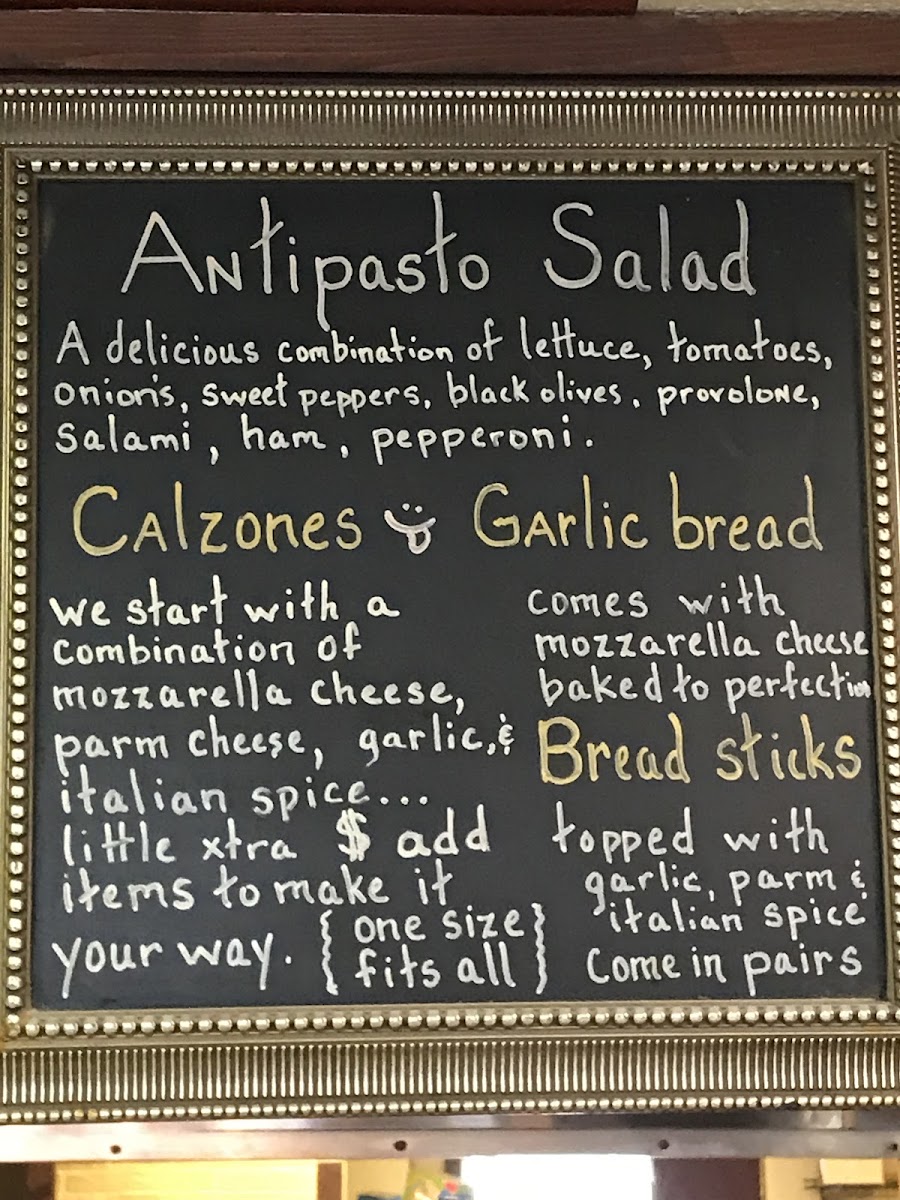 Antipasto Salad
A delicious combination of lettuce, tomatoes,
onion's, sweet peppers, black olives, provolone,
salami, ham, pepperoni.
Calzones
we start with a
combination of
mozzarella cheese,
parm cheese, garlic, &
italian spice...
little xtra $ add
items to make it
your way. { one size
fits all }
Garlic bread
comes with
mozzarella cheese
baked to perfection
Bread sticks
topped with
garlic, parm &
italian spice
Come in pairs